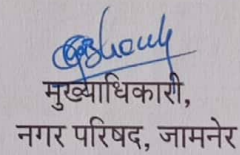 मुख्याधिकारी,
नगर परिषद, जामनेर